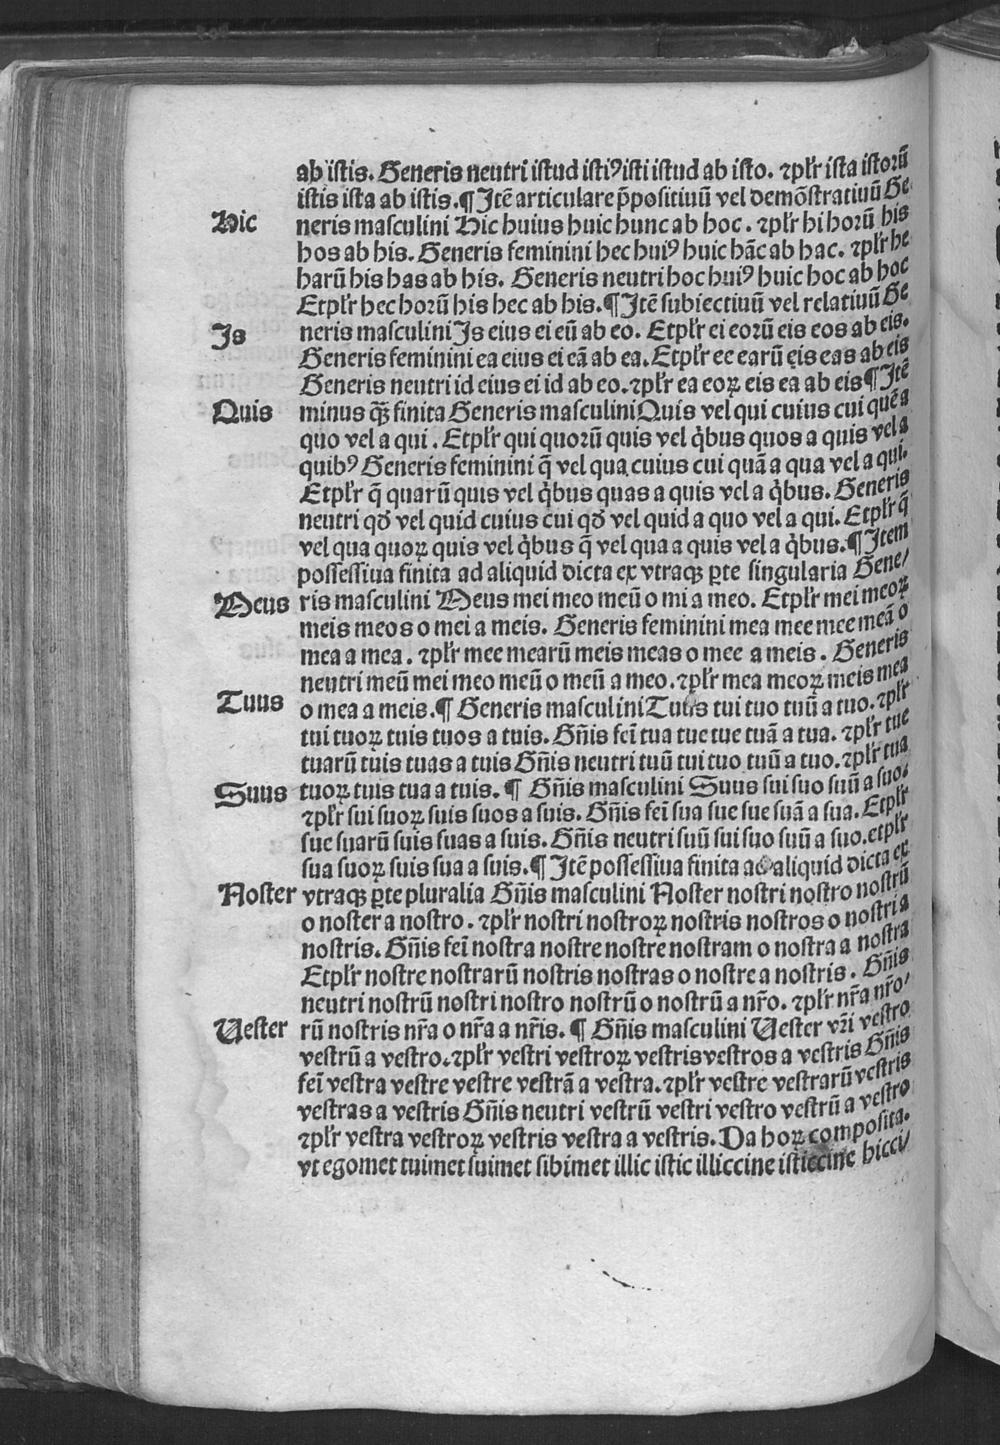 ab istis. Generis neutri istud istiꝰ isti istud ab isto. ⁊pl̃r ista istorũ
istis ista ab istis. ¶ Itẽ articulare p̃positiuũ vel demõstratiuũ Ge
Hic neris masculini Hic huius huic hunc ab hoc. ⁊pl̃r hi horũ his
hos ab his. Generis feminini hec huiꝰ huic hãc ab hac. ⁊pl̃r he
harũ his has ab his. Generis neutri hoc huiꝰ huic hoc ab hoc
Etpl̃r hec horũ his hec ab his. ¶ Itẽ subiectiuũ vel relatiuũ Ge
Is neris masculini Is eius ei eũ ab eo. Etpl̃r ei eorũ eis eos ab eis.
Generis feminini ea eius ei eã ab ea. Etpl̃r ee earũ eis eas ab eis
Generis neutri id eius ei id ab eo. ⁊pl̃r ea eoꝝ eis ea ab eis ¶ Itẽ
Quis minus q̃ꝫ finita Generis masculini Quis vel qui cuius cui quẽ a
quo vel a qui. Etpl̃r qui quorũ quis vel q̇bus quos a quis vel a
quibꝰ Generis feminini q̃ vel qua cuius cui quã a qua vel a qui.
Etpl̃r q̃ quarũ quis vel q̇bus quas a quis vel a q̇bus. Generis
neutri qđ vel quid cuius cui qđ vel quid a quo vel a qui. Etpl̃r q̃
vel qua quoꝝ quis vel q̇bus q̃ vel qua a quis vel a q̇bus. ¶ Item
possessiua finita ad aliquid dicta ex vtraqꝫ ꝑte singularia Gene/
Meus ris masculini Meus mei meo meũ o mi a meo. Etpl̃r mei meoꝝ
meis meos o mei a meis. Generis feminini mea mee mee meã o
mea a mea. ⁊pl̃r mee mearũ meis meas o mee a meis. Generis
neutri meũ mei meo meũ o meũ a meo. ⁊pl̃r mea meoꝝ meis mea
Tuus o mea a meis. ¶ Generis masculini Tuus tui tuo tuũ a tuo. ⁊pl̃r
tui tuoꝝ tuis tuos a tuis. Gñis feĩ tua tue tue tuã a tua. ⁊pl̃r tue
tuarũ tuis tuas a tuis Gñis neutri tuũ tui tuo tuũ a tuo. ⁊pl̃r tua
Suus tuoꝝ tuis tua a tuis. ¶ Gñis masculini Suus sui suo suũ a suo.
⁊pl̃r sui suoꝝ suis suos a suis. Gñis feĩ sua sue sue suã a sua. Etpl̃r
sue suarũ suis suas a suis. Gñis neutri suũ sui suo suũ a suo. etpl̃r
sua suoꝝ suis sua a suis. ¶ Itẽ possessiua finita ad aliquid dicta ex
Noster vtraqꝫ ꝑte pluralia Gñis masculini Noster nostri nostro nostrũ
o noster a nostro. ⁊pl̃r nostri nostroꝝ nostris nostros o nostri a
nostris. Gñis feĩ nostra nostre nostre nostram o nostra a nostra
Etpl̃r nostre nostrarũ nostris nostras o nostre a nostris. Gñis
neutri nostrũ nostri nostro nostrũ o nostrũ a nr̃o. ⁊pl̃r nr̃a nr̃o/
Uester rũ nostris nr̃a o nr̃a a nr̃is. ¶ Gñis masculini Uester vr̃i vestro
vestrũ a vestro. ⁊pl̃r vestri vestroꝝ vestris vestros a vestris Gñis
feĩ vestra vestre vestre vestrã a vestra. ⁊pl̃r vestre vestrarũ vestris
vestras a vestris Gñis neutri vestrũ vestri vestro vestrũ a vestro
⁊pl̃r vestra vestroꝝ vestris vestra a vestris. Da hoꝝ composita.
vt egomet tuimet suimet sibimet illic istic illiccine isticcine hicci/